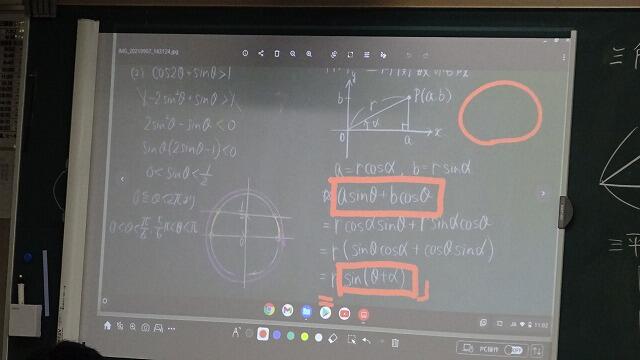 IMG_20210907_163124.jpg
(2) cos2θ+sinθ>1
1-2sin²θ+sinθ>1
2sin²θ-sinθ<0
sinθ(2sinθ-1)<0
0<sinθ<1/2
0≦θ<2πより
0<θ<π/6, 5/6π<θ<π
y
b
r
P(a.b)
α
0
a
x
a=rcosα, b=rsinα
asinθ+bcosθ
=rcosαsinθ+rsinαcosθ
=r(sinθcosα+cosθsinα)
=r sin(θ+α)
11:02
PC操作
OFF
三
三平